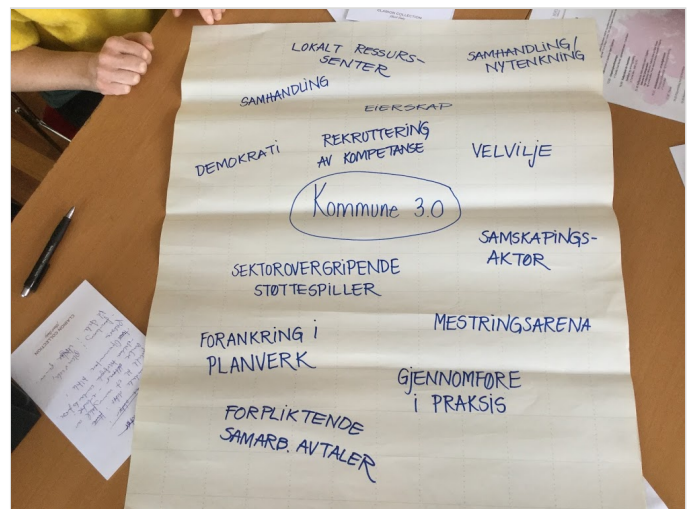 LOKALT RESSURS-
SENTER
SAMHANDLING/
NYTENKNING
SAMHANDLING
EIERSKAP
DEMOKRATI
REKRUTTERING
AV KOMPETANSE
VELVILJE
Kommune 3.0
SAMSKAPINGS-
AKTØR
SEKTOROVERGRIPENDE
STØTTESPILLER
MESTRINGSARENA
FORANKRING i
PLANVERK
GJENNOMFØRE
i PRAKSIS
FORPLIKTENDE
SAMARB. AVTALER